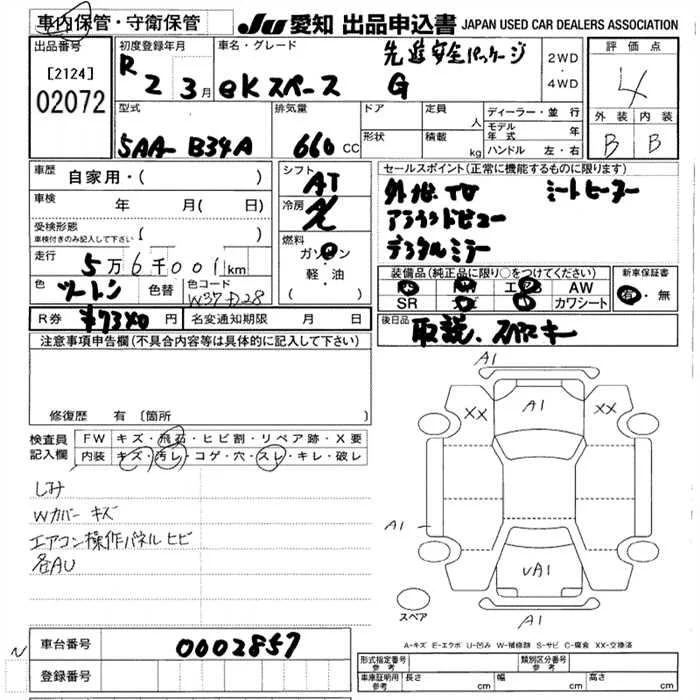 車内保管・守衛保管
JU 愛知 出品申込書 JAPAN USED CAR DEALERS ASSOCIATION
出品番号
[2124]
02072
初度登録年月
R 2 3月
車名・グレード
先進安全パッケージ
eKスペース G
2WD
・
4WD
評価点
4
外装 内装
B B
型式
5AA- B34A
排気量
660 CC
ドア
形状
定員 人
積載 kg
ディーラー・並行
モデル年式 年
ハンドル 左・右
車歴 自家用・( )
車検 年 月( 日)
受検形態
車検付きのみ記入して下さい ( )
走行 5万6千001km
色 ツートン 色替 色コード
W37 D28
シフト
AT
冷房
燃料
ガソリン
軽・油
( )
セールスポイント(正常に機能するものに限ります)
シートヒーター
アラウンドビュー
デジタルミラー
装備品(純正品に限り○をつけてください)
PS PW エアB AW
SR カワシート
新車保証書
有・無
R券 ¥7340 円 名変通知期限 月 日
後日品
取説、スペアキー
注意事項申告欄(不具合内容等は具体的に記入して下さい)
修復歴 有〔箇所
検査員
記入欄
FW キズ・飛石・ヒビ割・リペア跡・X要
内装 キズ・汚レ・コゲ・穴・スレ・キレ・破レ
しみ
Wカバー キズ
エアコン操作パネル ヒビ
各AU
A1
XX A1 XX
A1
vA1
A1
スペア
A-キズ E-エクボ U-凹み W-補修跡 S-サビ C-腐食 XX-交換済
車台番号 0002857
N
登録番号
形式指定番号
参考
類別区分番号
参考
車庫証明用
参考
長さ cm 幅 cm 高さ cm